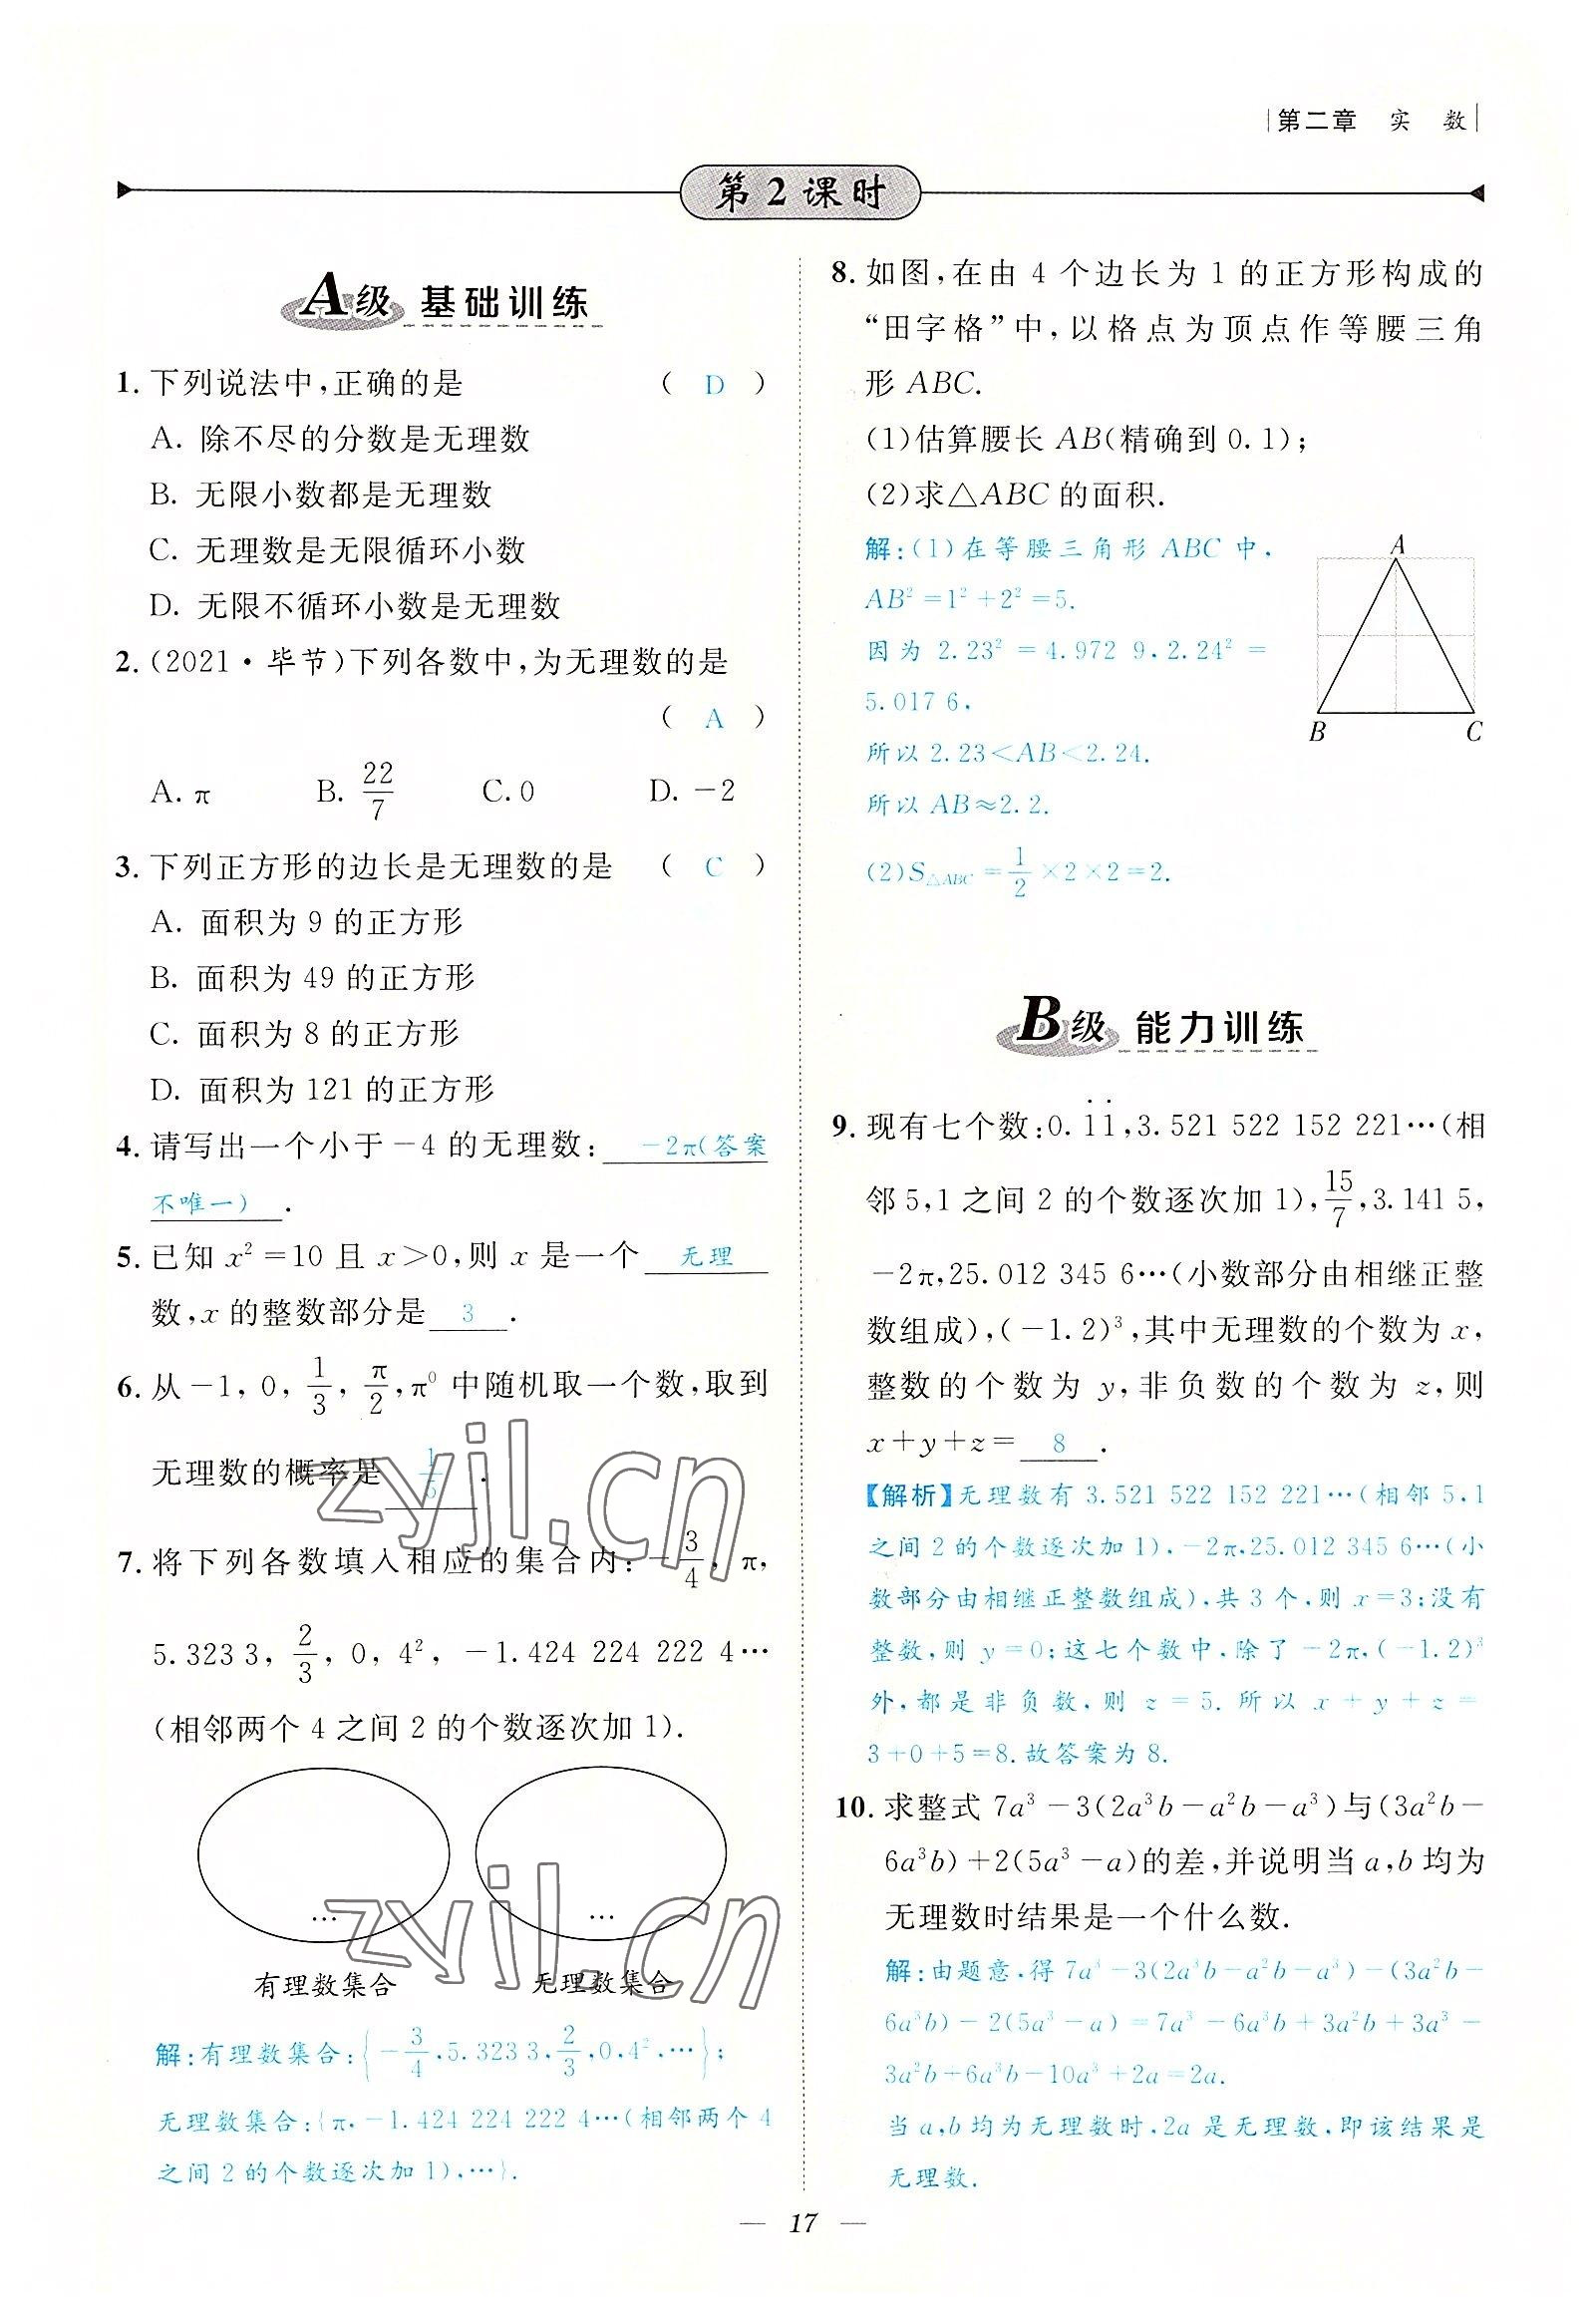 第二章 实 数
第2课时
A级 基础训练
1. 下列说法中,正确的是 ( D )
A. 除不尽的分数是无理数
B. 无限小数都是无理数
C. 无理数是无限循环小数
D. 无限不循环小数是无理数
2. (2021·毕节)下列各数中,为无理数的是
( A )
A. π B. 22/7 C. 0 D. -2
3. 下列正方形的边长是无理数的是 ( C )
A. 面积为 9 的正方形
B. 面积为 49 的正方形
C. 面积为 8 的正方形
D. 面积为 121 的正方形
4. 请写出一个小于-4 的无理数: -2π(答案
不唯一) .
5. 已知 x²=10 且 x>0,则 x 是一个 无理
数,x 的整数部分是 3 .
6. 从-1, 0, 1/3, π/2, π⁰ 中随机取一个数,取到
无理数的概率是 1/5 .
7. 将下列各数填入相应的集合内:-3/4, π,
5.323 3, 2/3, 0, 4², -1.424 224 222 4…
(相邻两个 4 之间 2 的个数逐次加 1).
… …
有理数集合 无理数集合
解:有理数集合:{-3/4,5.323 3,2/3,0,4²,…};
无理数集合:{π,-1.424 224 222 4…(相邻两个 4
之间 2 的个数逐次加 1),…}.
8. 如图,在由 4 个边长为 1 的正方形构成的
“田字格”中,以格点为顶点作等腰三角
形 ABC.
(1)估算腰长 AB(精确到 0.1);
(2)求△ABC 的面积.
解:(1)在等腰三角形 ABC 中,
AB²=1²+2²=5.
因为 2.23²=4.972 9,2.24²=
5.017 6,
所以 2.23<AB<2.24.
所以 AB≈2.2.
(2)S△ABC=1/2×2×2=2.
A
B C
B级 能力训练
9. 现有七个数:0.1̇1̇,3.521 522 152 221…(相
邻 5,1 之间 2 的个数逐次加 1),15/7,3.141 5,
-2π,25.012 345 6…(小数部分由相继正整
数组成),(-1.2)³,其中无理数的个数为 x,
整数的个数为 y,非负数的个数为 z,则
x+y+z= 8 .
【解析】无理数有 3.521 522 152 221…(相邻 5,1
之间 2 的个数逐次加 1),-2π,25.012 345 6…(小
数部分由相继正整数组成),共 3 个,则 x=3;没有
整数,则 y=0;这七个数中,除了-2π,(-1.2)³
外,都是非负数,则 z=5. 所以 x+y+z=
3+0+5=8.故答案为 8.
10. 求整式 7a³-3(2a³b-a²b-a³)与(3a²b-
6a³b)+2(5a³-a)的差,并说明当 a,b 均为
无理数时结果是一个什么数.
解:由题意,得 7a³-3(2a³b-a²b-a³)-(3a²b-
6a³b)-2(5a³-a)=7a³-6a³b+3a²b+3a³-
3a²b+6a³b-10a³+2a=2a.
当 a,b 均为无理数时,2a 是无理数,即该结果是
无理数.
— 17 —
zyjl.cn
zyjl.cn